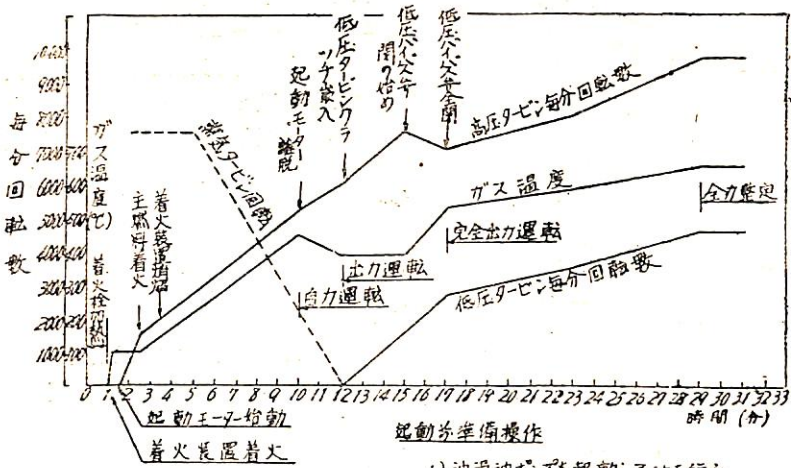 毎分回転数
ガス温度(℃)
10,000
9000
8000
7000 700
6000 600
5000 500
4000 400
3000 300
2000 200
1000 100
着火栓加熱
主燃料着火
着火装置消沼
起動モーター離脱
低圧タービンクラッチ嵌入
低圧バイパス弁閉の始め
低圧バイパス弁全閉
高圧タービン毎分回転数
ガス温度
全力整定
完全出力運転
出力運転
自力運転
低圧タービン毎分回転数
タービン回転
0 1 2 3 4 5 6 7 8 9 10 11 12 13 14 15 16 17 18 19 20 21 22 23 24 25 26 27 28 29 30 31 32 33
時間(分)
起動モーター始動
着火装置着火
起動前準備操作